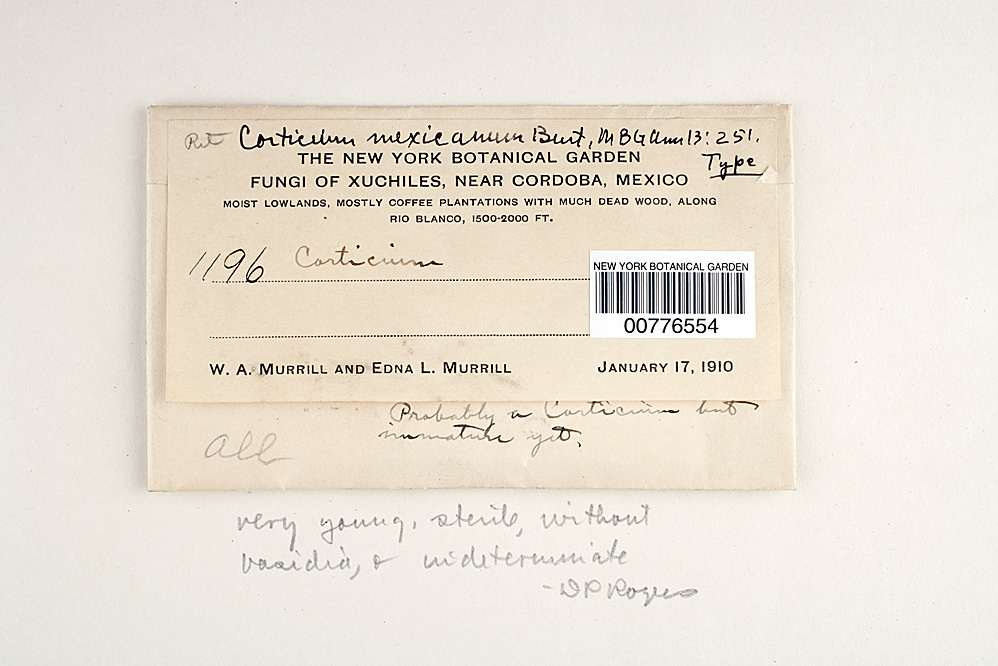 Corticium mexicanum Burt, MBG Ann 13: 251.
Type
THE NEW YORK BOTANICAL GARDEN
FUNGI OF XUCHILES, NEAR CORDOBA, MEXICO
MOIST LOWLANDS, MOSTLY COFFEE PLANTATIONS WITH MUCH DEAD WOOD, ALONG
RIO BLANCO, 1500-2000 FT.
1196 Corticium
NEW YORK BOTANICAL GARDEN
00776554
W. A. MURRILL AND EDNA L. MURRILL JANUARY 17, 1910
Probably a Corticium but
immature yet.
all
very young, sterile, without
basidia, & indeterminate
- DP Rogers